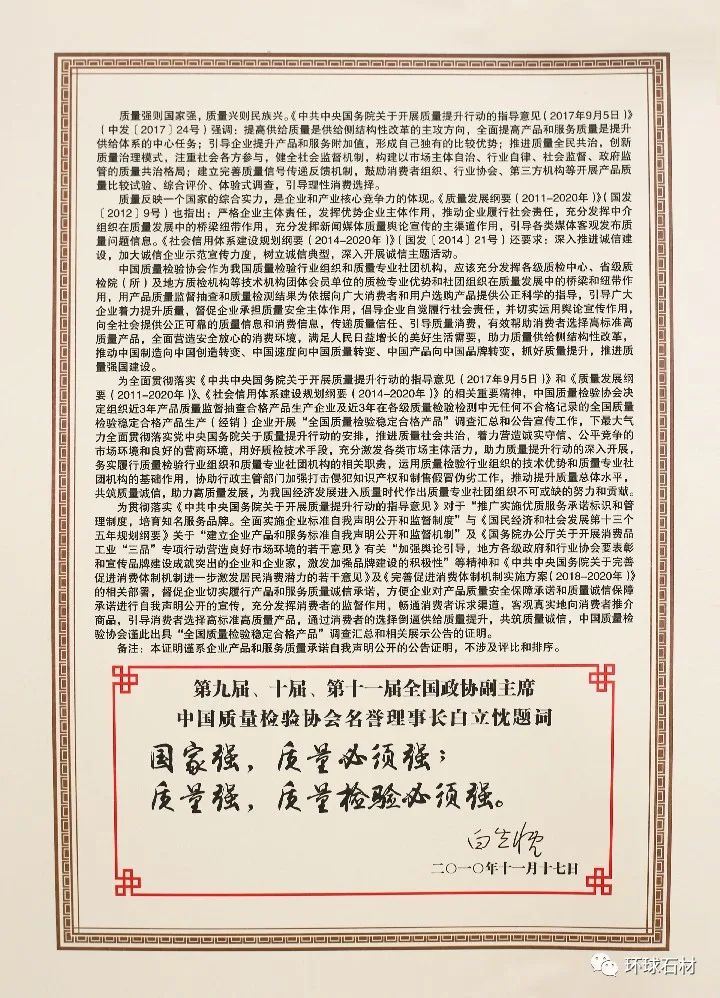 质量强则国家强，质量兴则民族兴。《中共中央国务院关于开展质量提升行动的指导意见（2017年9月5日）》
（中发［2017］24号）强调：提高供给质量是供给侧结构性改革的主攻方向，全面提高产品和服务质量是提升
供给体系的中心任务；引导企业提升产品和服务附加值，形成自己独有的比较优势；推进质量全民共治，创新
质量治理模式，注重社会各方参与，健全社会监督机制，构建以市场主体自治、行业自律、社会监督、政府监
管的质量共治格局；建立完善质量信号传递反馈机制，鼓励消费者组织、行业协会、第三方机构等开展产品质
量比较试验、综合评价、体验式调查，引导理性消费选择。
质量反映一个国家的综合实力，是企业和产业核心竞争力的体现。《质量发展纲要（2011-2020年）》（国发
［2012］9号）也指出：严格企业主体责任，发挥优势企业主体作用，推动企业履行社会责任，充分发挥中介
组织在质量发展中的桥梁纽带作用，充分发挥新闻媒体质量舆论宣传的主渠道作用，引导各类媒体客观发布质
量问题信息。《社会信用体系建设规划纲要（2014-2020年）》（国发［2014］21号）还要求：深入推进诚信建
设，加大诚信企业示范宣传力度，树立诚信典型，深入开展诚信主题活动。
中国质量检验协会作为我国质量检验行业组织和质量专业社团机构，应该充分发挥各级质检中心、省级质
检院（所）及地方质检机构等技术机构团体会员单位的质检专业优势和社团组织在质量发展中的桥梁和纽带作
用，用产品质量监督抽查和质量检测结果为依据向广大消费者和用户选购产品提供公正科学的指导，引导广大
企业着力提升质量，督促企业承担质量安全主体作用，倡导企业自觉履行社会责任，并切实运用舆论宣传作用，
向全社会提供公正可靠的质量信息和消费信息，传递质量信任、引导质量消费，有效帮助消费者选择高标准高
质量产品，全面营造安全放心的消费环境，满足人民日益增长的美好生活需要，助力质量供给侧结构性改革，
推动中国制造向中国创造转变、中国速度向中国质量转变、中国产品向中国品牌转变，抓好质量提升，推进质
量强国建设。
为全面贯彻落实《中共中央国务院关于开展质量提升行动的指导意见（2017年9月5日）》和《质量发展纲
要（2011-2020年）》、《社会信用体系建设规划纲要（2014-2020年）》的相关重要精神，中国质量检验协会决
定组织近3年产品质量监督抽查合格产品生产企业及近3年在各级质量检验检测中无任何不合格记录的全国质量
检验稳定合格产品生产（经销）企业开展“全国质量检验稳定合格产品”调查汇总和公告宣传工作，下最大气
力全面贯彻落实党中央国务院关于质量提升行动的安排，推进质量社会共治，着力营造诚实守信、公平竞争的
市场环境和良好的营商环境，用好质检技术手段，充分激发各类市场主体活力，助力质量提升行动的深入开展，
务实履行质量检验行业组织和质量专业社团机构的相关职责，运用质量检验行业组织的技术优势和质量专业社
团机构的基础作用，协助行政主管部门加强打击侵犯知识产权和制售假冒伪劣工作，推动提升质量总体水平，
共筑质量诚信，助力高质量发展，为我国经济发展进入质量时代作出质量专业社团组织不可或缺的努力和贡献。
为贯彻落实《中共中央国务院关于开展质量提升行动的指导意见》对于“推广实施优质服务承诺标识和管
理制度，培育知名服务品牌。全面实施企业标准自我声明公开和监督制度”与《国民经济和社会发展第十三个
五年规划纲要》关于“建立企业产品和服务标准自我声明公开和监督机制”及《国务院办公厅关于开展消费品
工业“三品”专项行动营造良好市场环境的若干意见》有关“加强舆论引导，地方各级政府和行业协会要表彰
和宣传品牌建设成就突出的企业和企业家，激发加强品牌建设的积极性”等精神和《中共中央国务院关于完善
促进消费体制机制进一步激发居民消费潜力的若干意见》及《完善促进消费体制机制实施方案（2018-2020年）》
的相关部署，督促企业切实履行产品和服务质量诚信承诺，方便企业对产品质量安全保障承诺和质量诚信保障
承诺进行自我声明公开的宣传，充分发挥消费者的监督作用，畅通消费者诉求渠道，客观真实地向消费者推介
商品，引导消费者选择高标准高质量产品，通过消费者的选择倒逼供给质量提升，共筑质量诚信，中国质量检
验协会谨此出具“全国质量检验稳定合格产品”调查汇总和相关展示公告的证明。
备注：本证明谨系企业产品和服务质量承诺自我声明公开的公告证明，不涉及评比和排序。
第九届、十届、第十一届全国政协副主席
中国质量检验协会名誉理事长白立忱题词
国家强，质量必须强；
质量强，质量检验必须强。
白立忱
二〇一〇年十一月十七日
环球石材